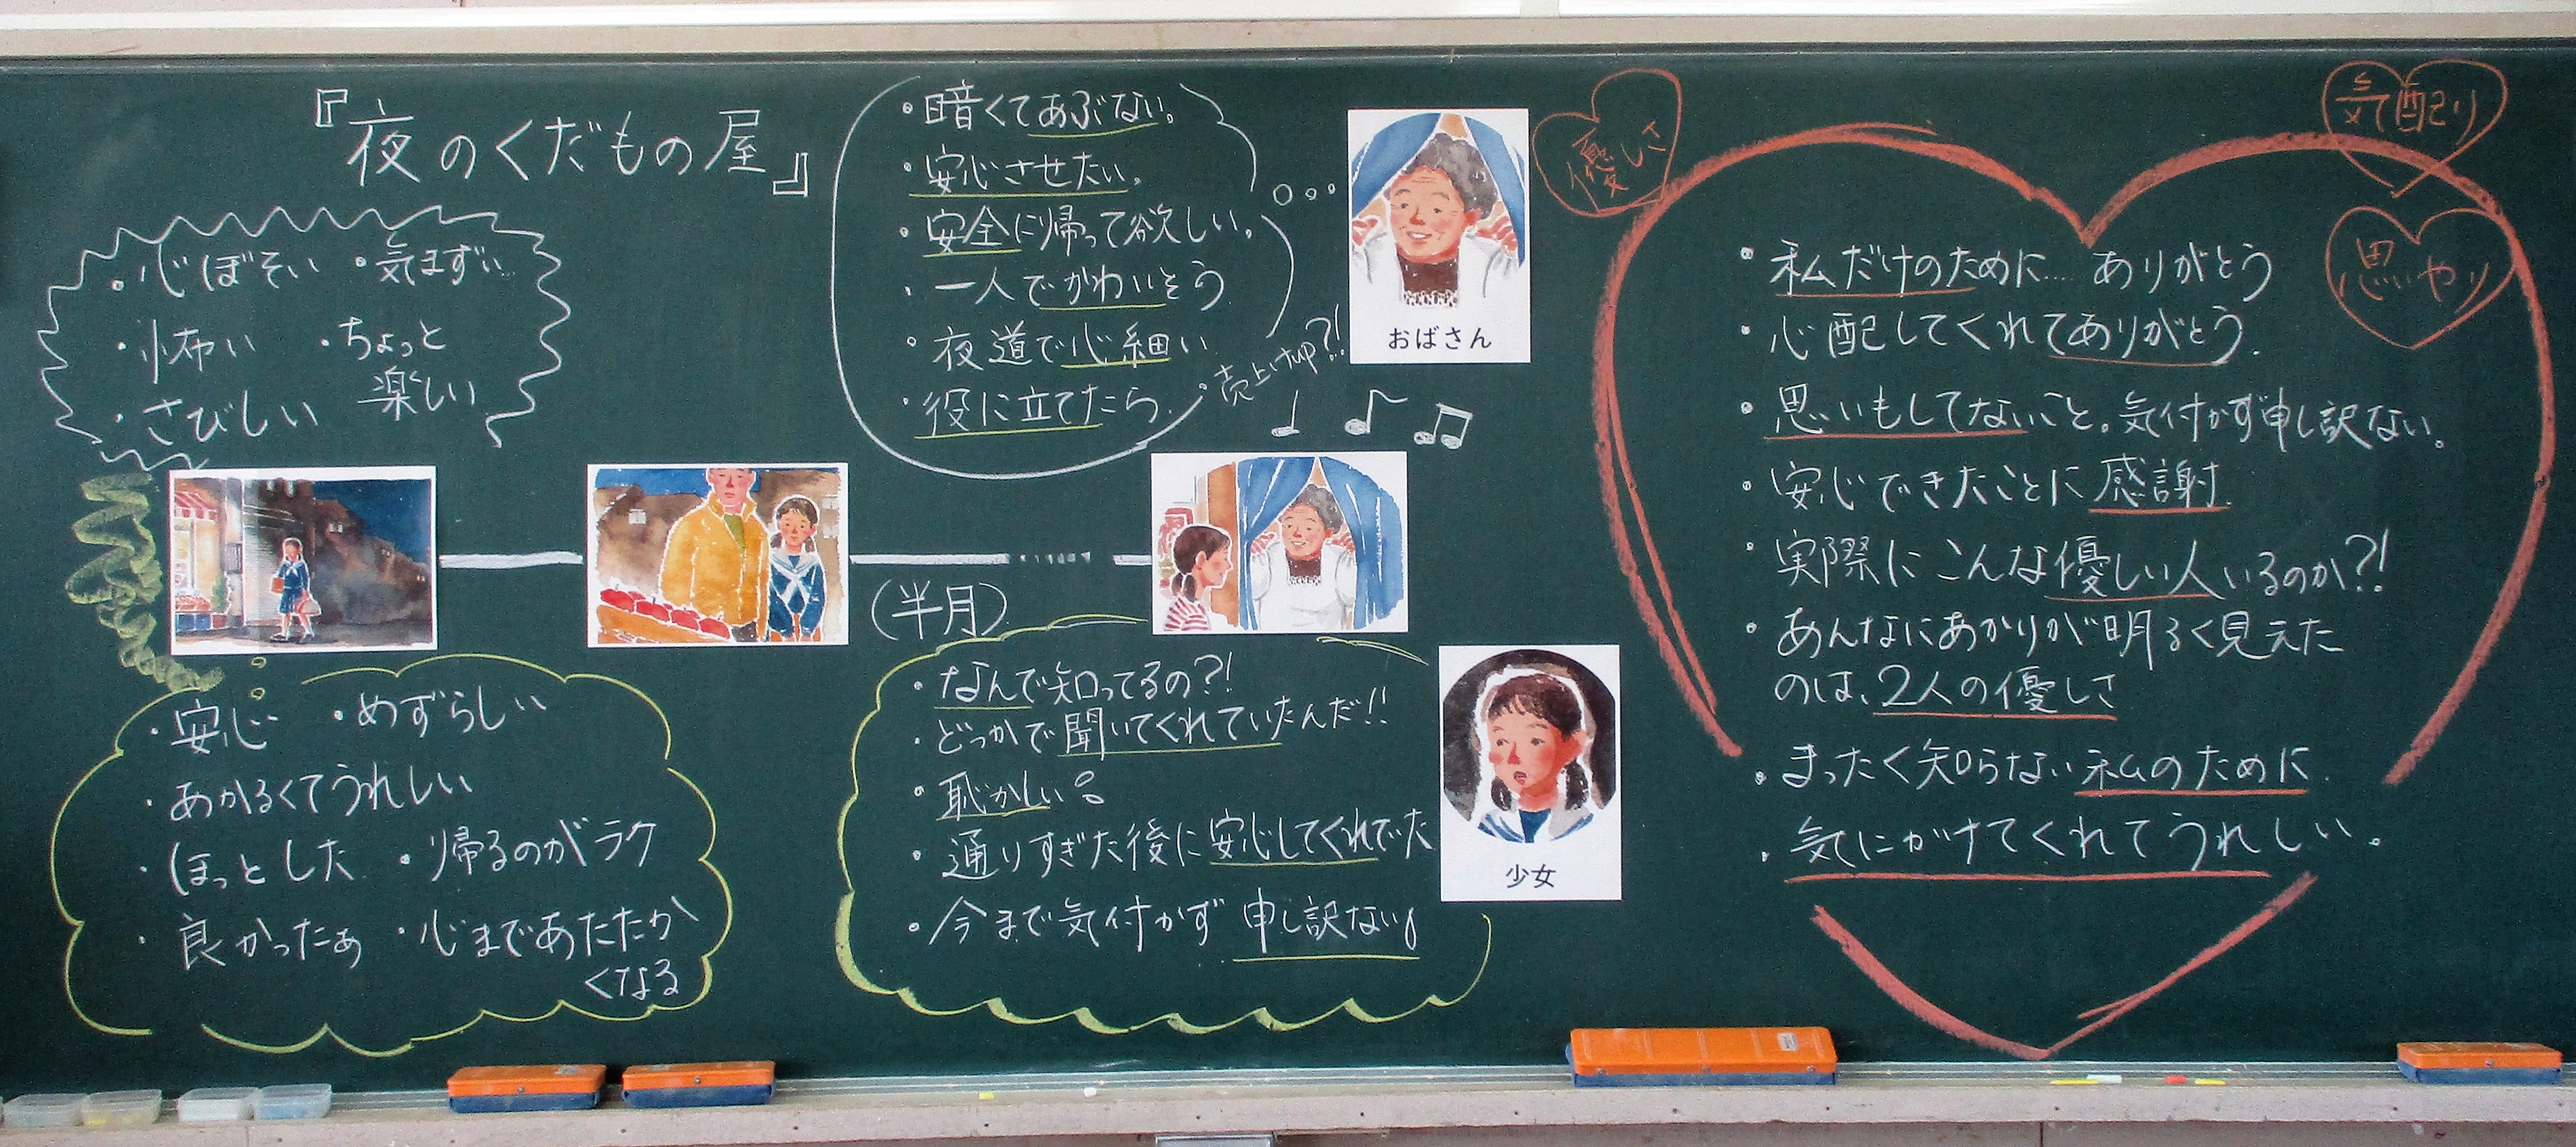 『夜のくだもの屋』
・心ぼそい ・気まずい
・怖い ・ちょっと
楽しい
・さびしい
・安心 ・めずらしい
・あかるくてうれしい
・ほっとした ・帰るのがラク
・良かったぁ ・心まであたたか
くなる
・暗くてあぶない。
・安心させたい。
・安全に帰って欲しい。
・一人でかわいそう
・夜道で心細い
・役に立てたら
・売上げup?!
おばさん
(半月)
・なんで知ってるの?!
・どっかで聞いてくれていたんだ!!
・恥かしい
・通りすぎた後に安心してくれてた
・今まで気付かず申し訳ない
少女
優しさ
気配り
思いやり
・私だけのために…ありがとう
・心配してくれてありがとう。
・思いもしてないこと。気付かず申し訳ない。
・安心できたことに感謝
・実際にこんな優しい人いるのか?!
・あんなにあかりが明るく見えた
のは、2人の優しさ
・まったく知らない私のために
・気にかけてくれてうれしい。